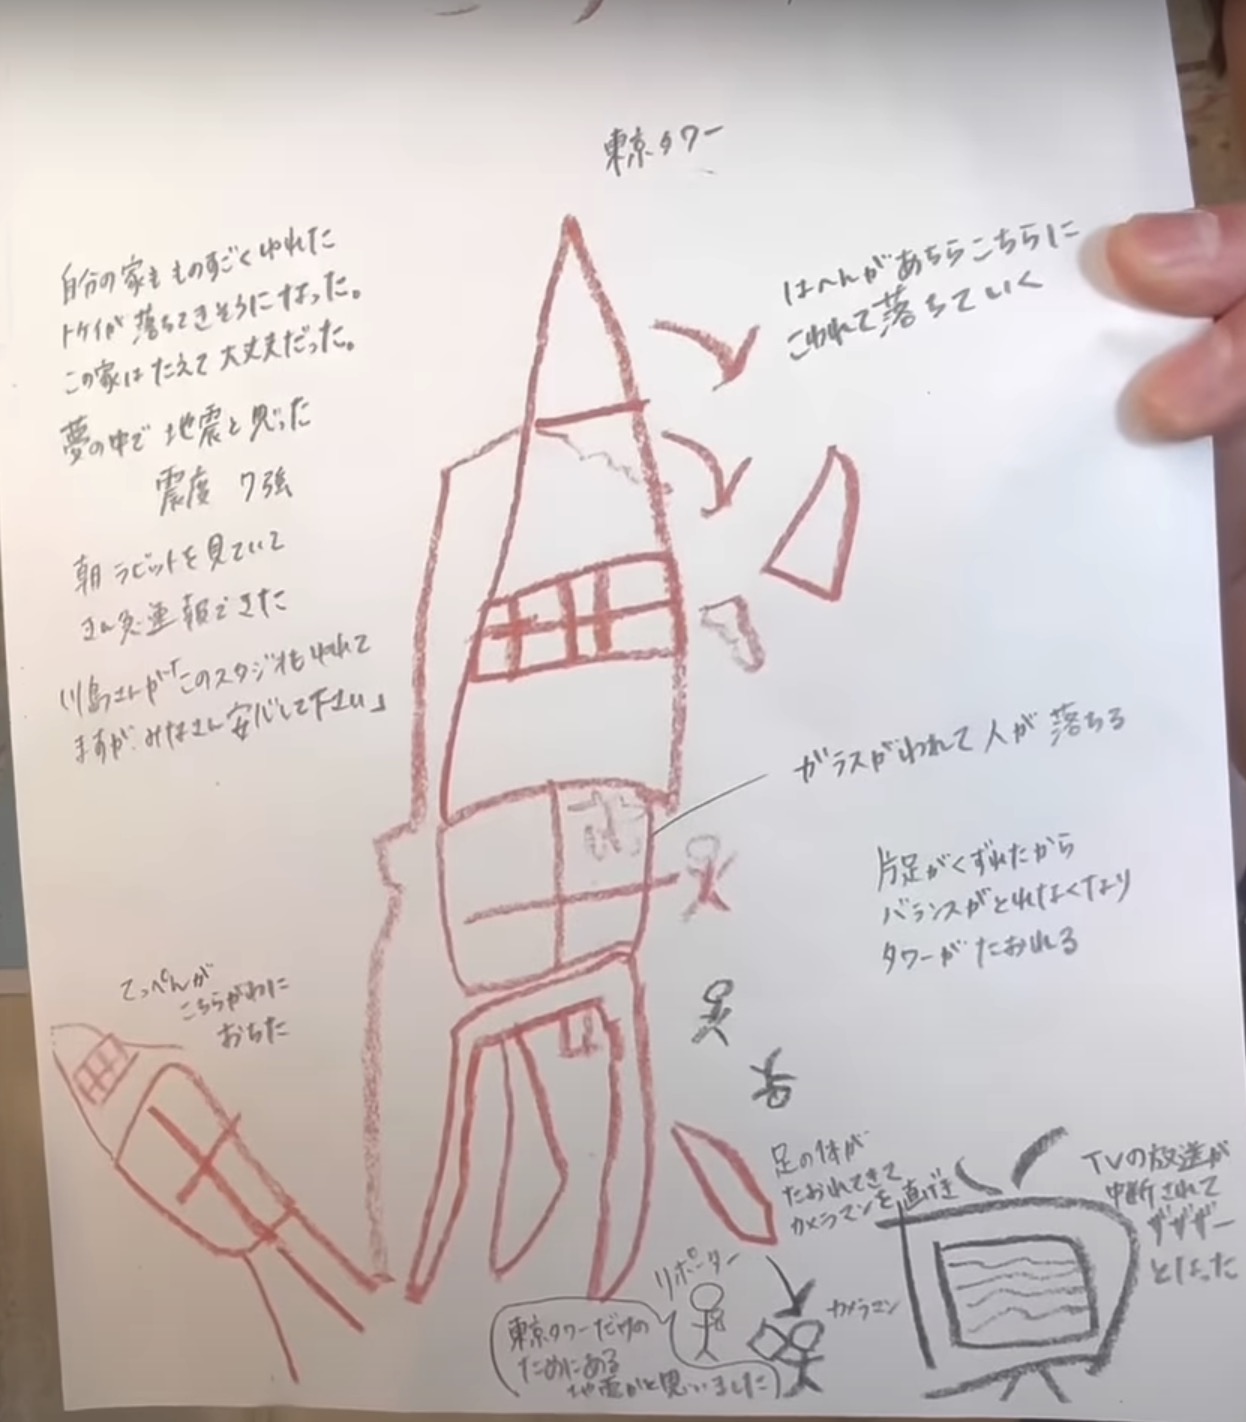 東京タワー
自分の家も ものすごくゆれた
トケイが 落ちてきそうになった。
この家は たえて 大丈夫だった。
夢の中で 地震と思った
震度 7強
朝 ラビットを見ていて
きん急速報できた
川島さんが「このスタジオもゆれて
ますが、みなさん安心して下さい」
はへんがあちらこちらに
こわれて落ちていく
ガラスがわれて人が落ちる
片足がくずれたから
バランスがとれなくなり
タワーがたおれる
てっぺんが
こちらがわに
おちた
足の1本が
たおれてきて
カメラマンを直げき
TVの放送が
中断されて
ザザザー
となった
リポーター
カメラマン
東京タワーだけの
ためにある
地震かと思いました